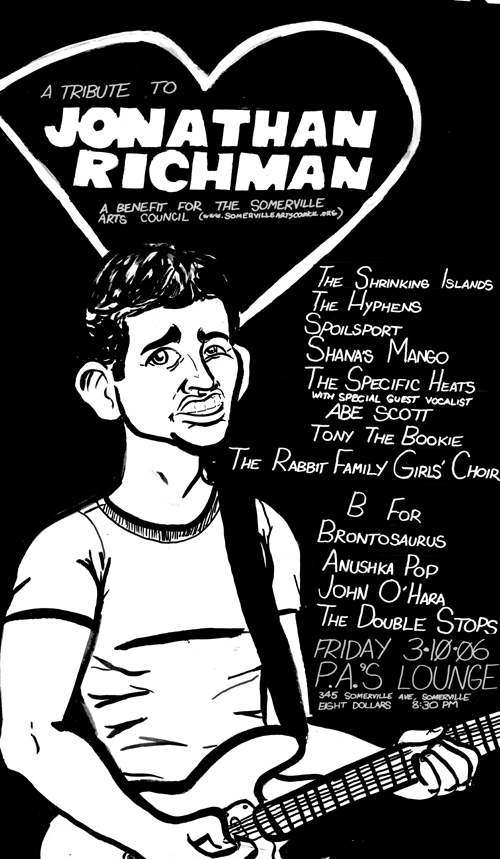 A TRIBUTE TO
JONATHAN
RICHMAN
A BENEFIT FOR THE SOMERVILLE
ARTS COUNCIL (WWW.SOMERVILLEARTSCOUNCIL.ORG)
THE SHRINKING ISLANDS
THE HYPHENS
SPOILSPORT
SHANA'S MANGO
THE SPECIFIC HEATS
WITH SPECIAL GUEST VOCALIST
ABE SCOTT
TONY THE BOOKIE
THE RABBIT FAMILY GIRLS' CHOIR
B FOR
BRONTOSAURUS
ANUSHKA POP
JOHN O'HARA
THE DOUBLE STOPS
FRIDAY 3·10·06
P.A.'S LOUNGE
345 SOMERVILLE AVE, SOMERVILLE
EIGHT DOLLARS 8:30 PM